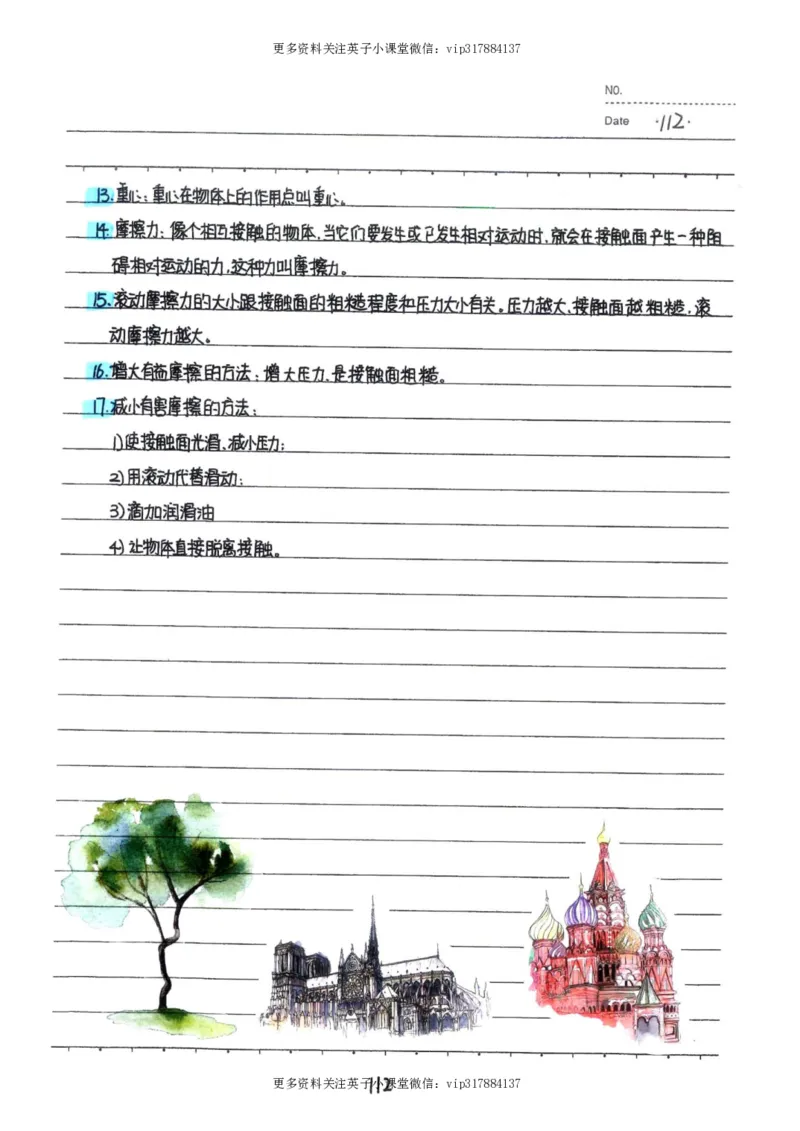 更多资料关注英子小课堂微信：vip317884137
NO.
Date ·112·
13.重心：重心在物体上的作用点叫重心。
14.摩擦力：俩个相互接触的物体,当它们要发生或已发生相对运动时,就会在接触面产生一种阻
碍相对运动的力,这种力叫摩擦力。
15.滚动摩擦力的大小跟接触面的粗糙程度和压力大小有关。压力越大、接触面越粗糙,滚
动摩擦力越大。
16.增大有益摩擦的方法：增大压力,是接触面粗糙。
17.减小有害摩擦的方法：
1)使接触面光滑、减小压力；
2)用滚动代替滑动；
3)滴加润滑油
4)让物体直接脱离接触。
更多资料关注英子小课堂微信：vip317884137
112